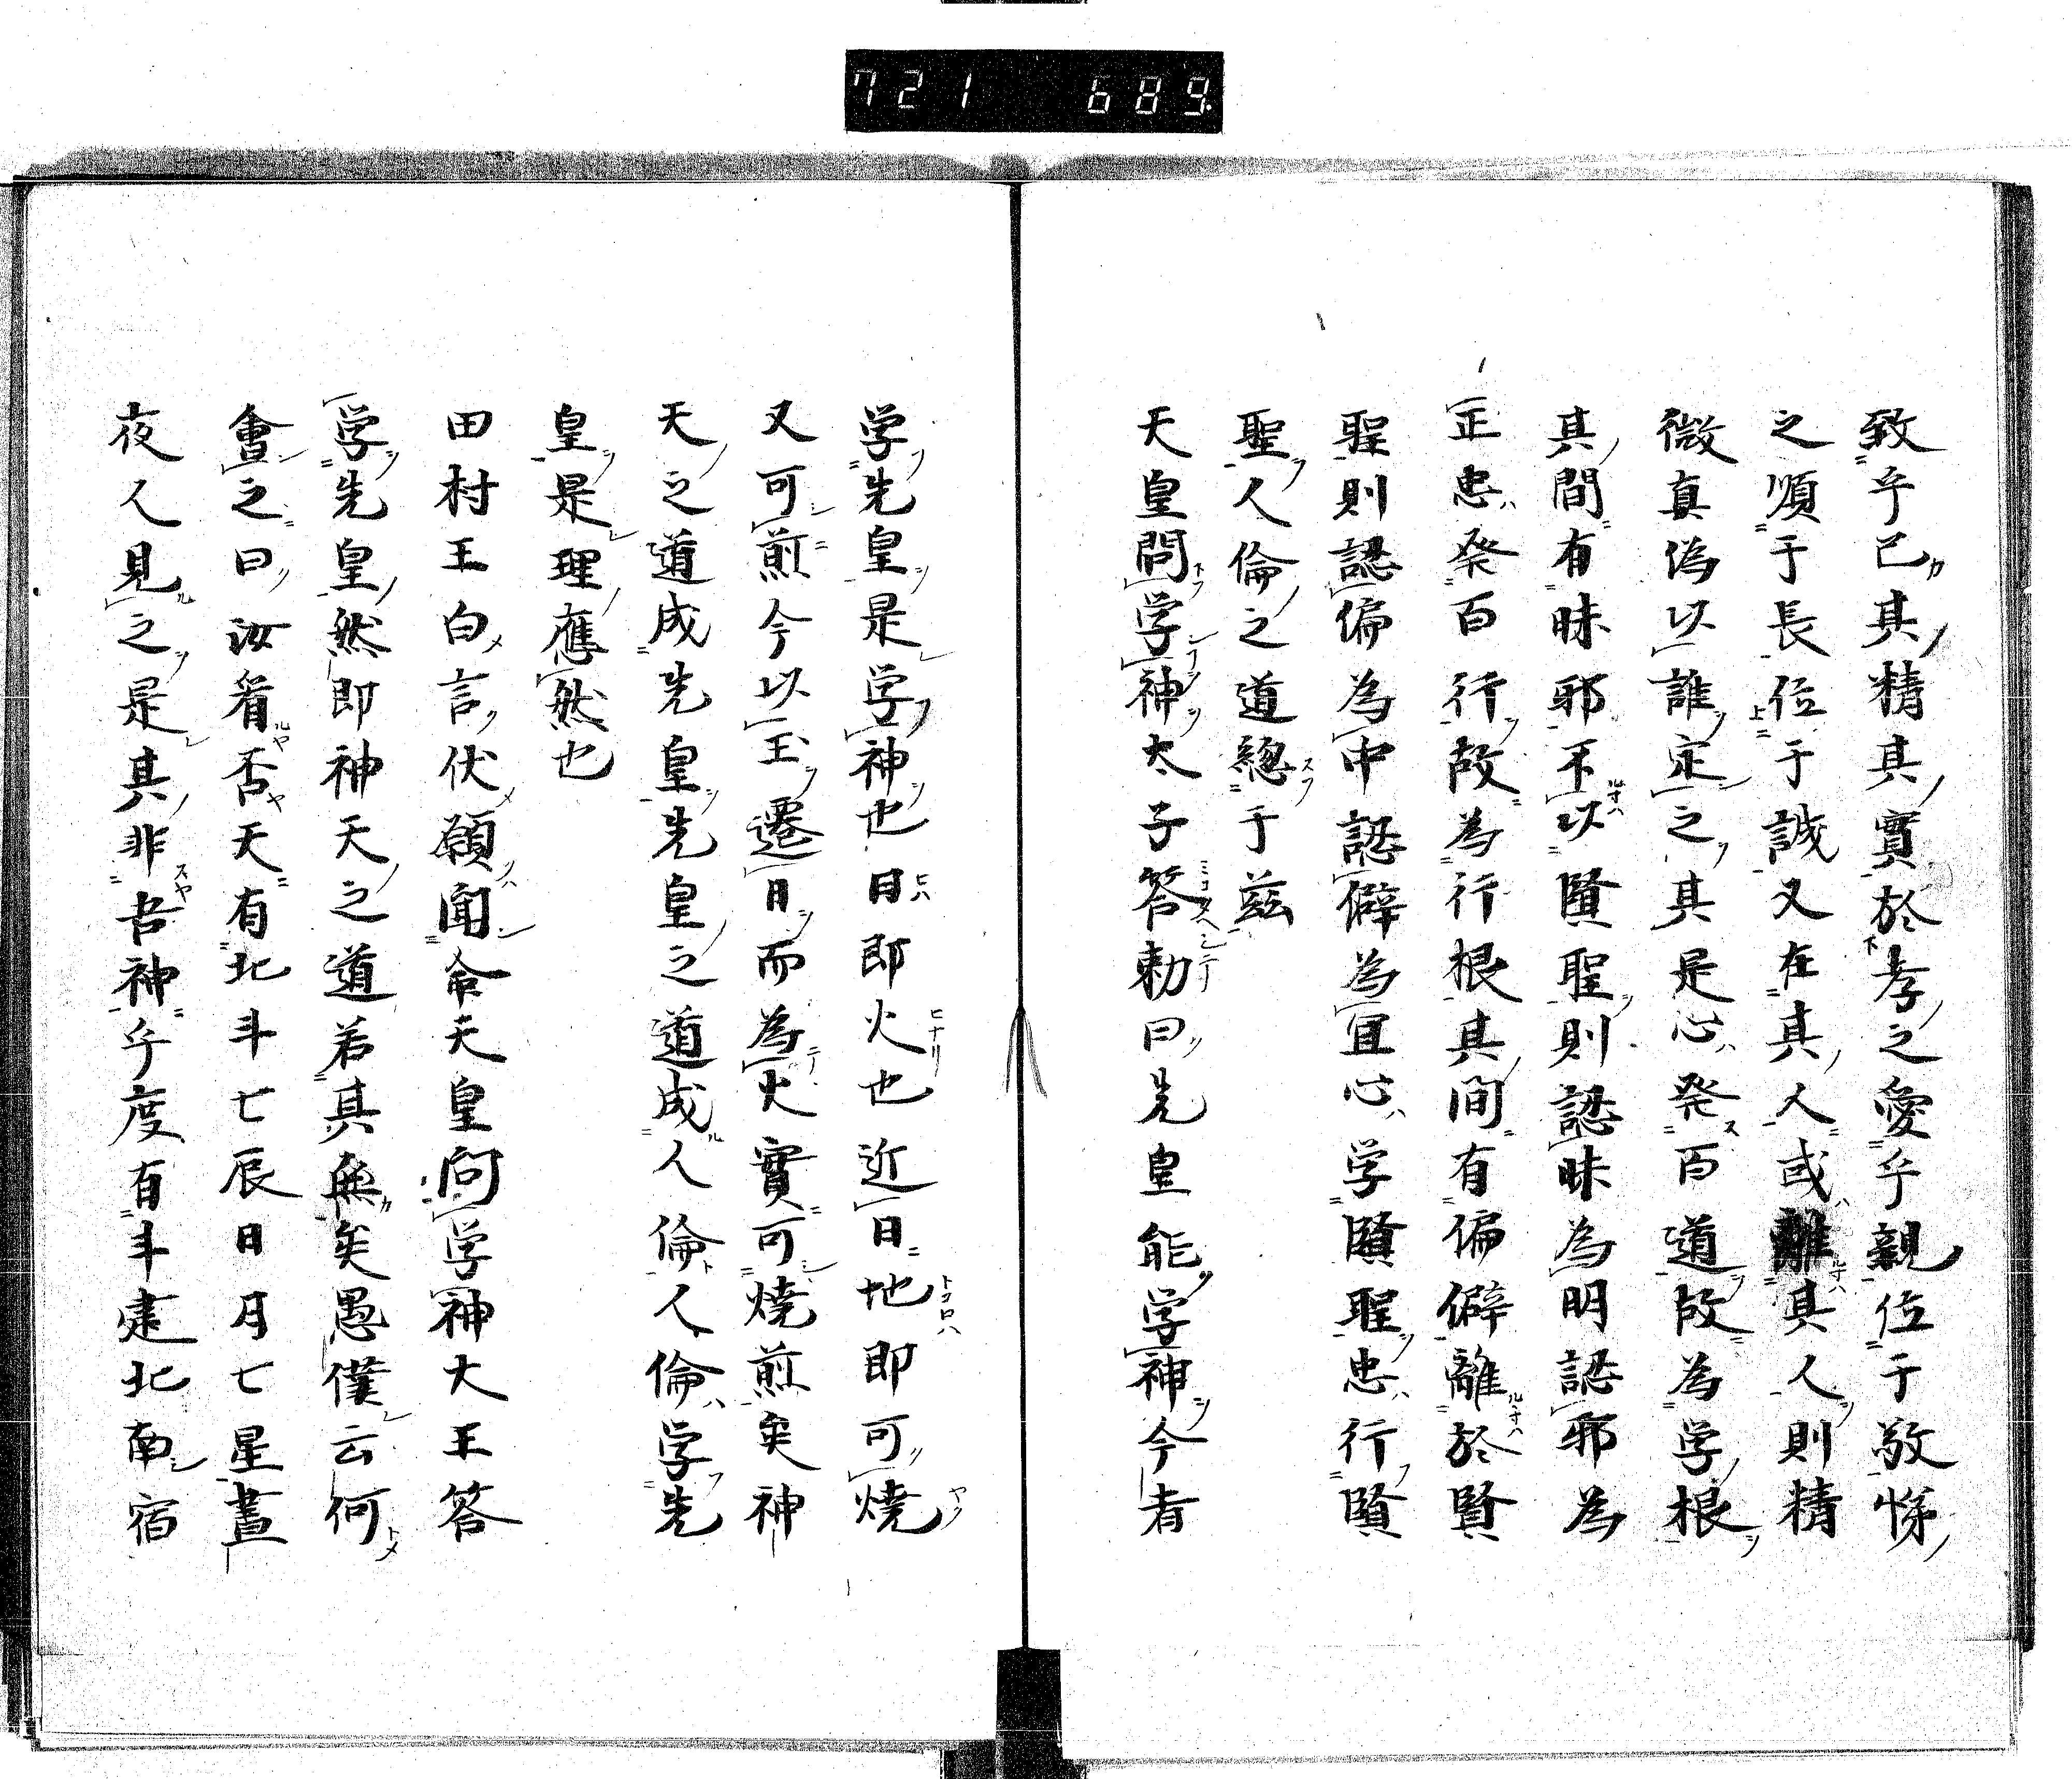 721 689
致乎己其精其實於孝之愛乎親位于敬悌
之順于長位于誠又在其人或離其人則精
微真偽以誰定之其是心発百道故為学根
其間有昧邪不以賢聖則認昧為明認邪為
正忠発百行故為行根其間有偏僻離於賢
聖則認偏為中認僻為宜心学賢聖忠行賢
聖人倫之道総于茲
天皇問学神太子答勅曰先皇能学神今者
学先皇是学神也日即火也近日地即可焼
又可煎今以玉遷日而為火實可焼煎矣神
天之道成先皇先皇之道成人倫人倫学先
皇是理應然也
田村王白言伏願聞命天皇向学神大王答
学先皇然即神天之道若其無矣愚僕云何
會之曰汝看否天有北斗七辰日月七星晝
夜人見之是其非吾神乎度有斗建北南宿